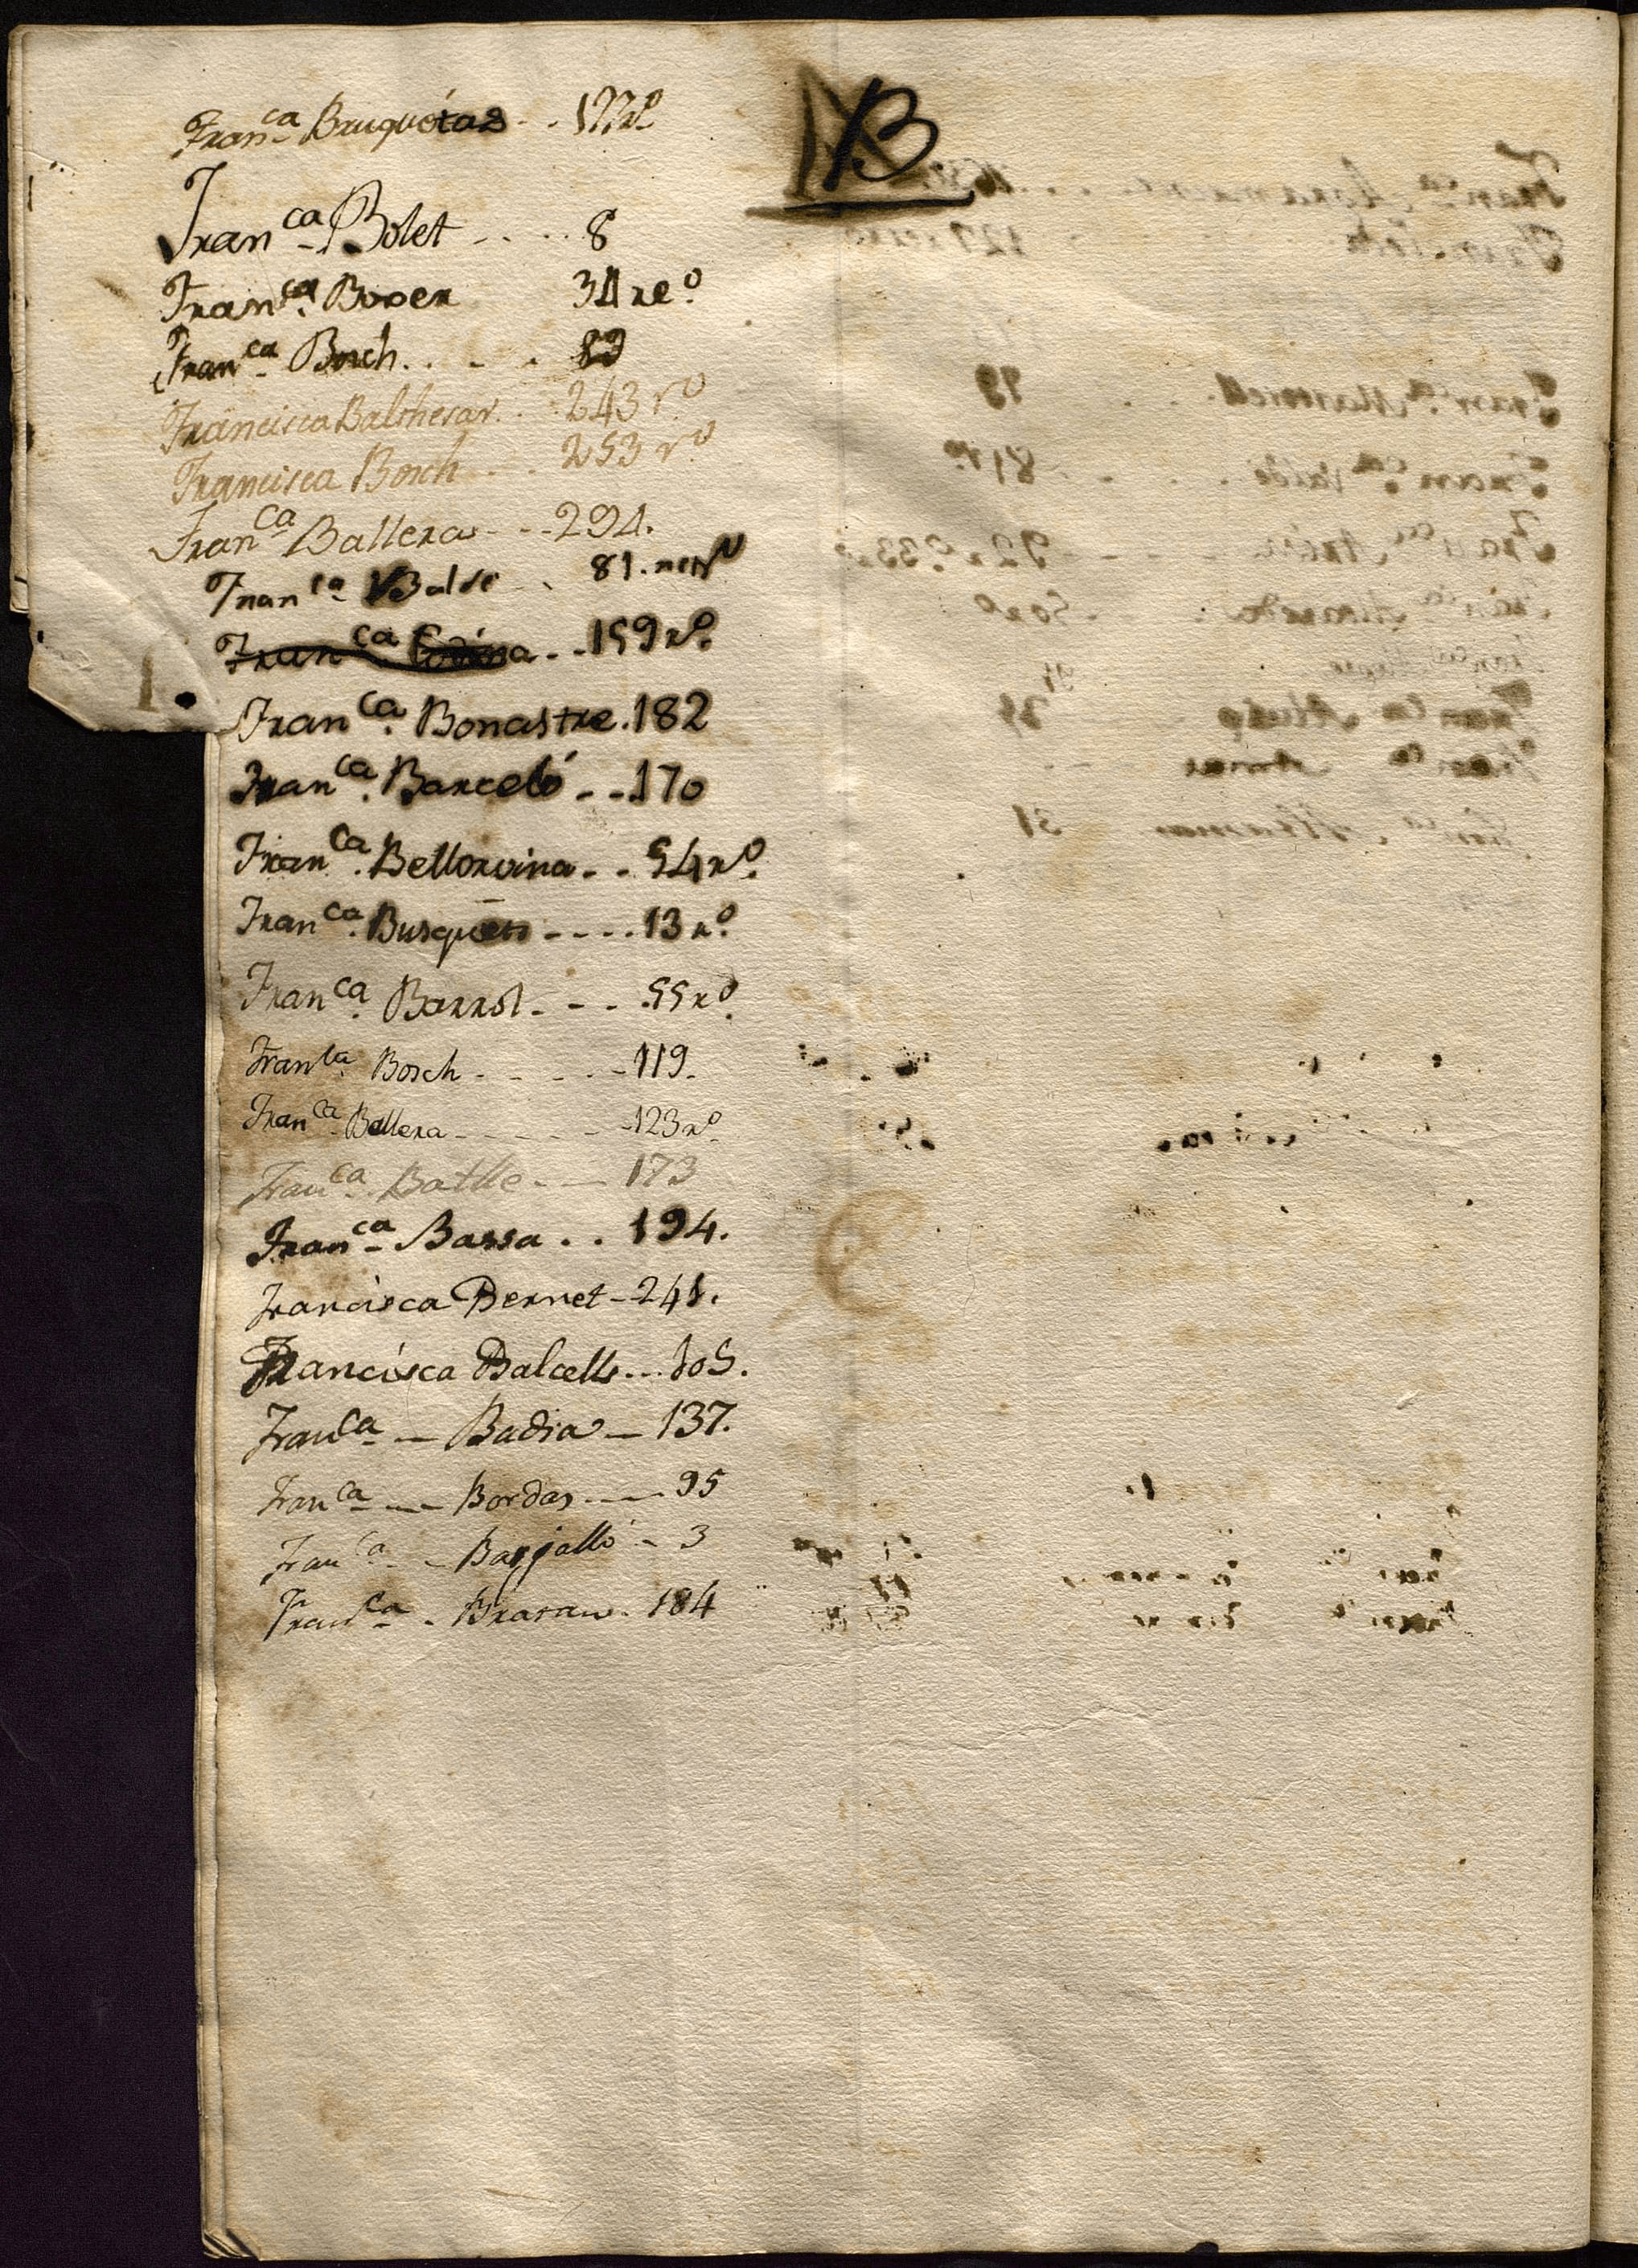 B
Fran.ca Bruquétas - - 122 r.o
Fran.ca Bolet - - - - 8
Fran.ca Bover 34 re.o
Fran.ca Bosch. . - . 89
Francisca Balthesar. . . 243 r.o
Francisca Bosch - - . 253 r.o
Fran.ca Ballera - - - 294.
Fran.ca Balde - . 81.
Fran.ca - - 159 r.o
Fran.ca Bonastre. 182
Fran.ca Barceló - - 170
Fran.ca Bellorvina - - 54 r.o
Fran.ca Busquets - - - - 13 r.o
Fran.ca Barrol - - - 55 r.o
Fran.ca Bosch - - - - - 119.
Fran.ca Ballera - - - - - 123 r.o
Fran.ca Batlle - - 173
Fran.ca Bassa . . 194.
Francisca Bernet - 241.
Francisca Balcells - - - 105.
Fran.ca — Badia — 137.
Fran.ca — Bordas — 95
Fran.ca - - 3
Fran.ca - 184